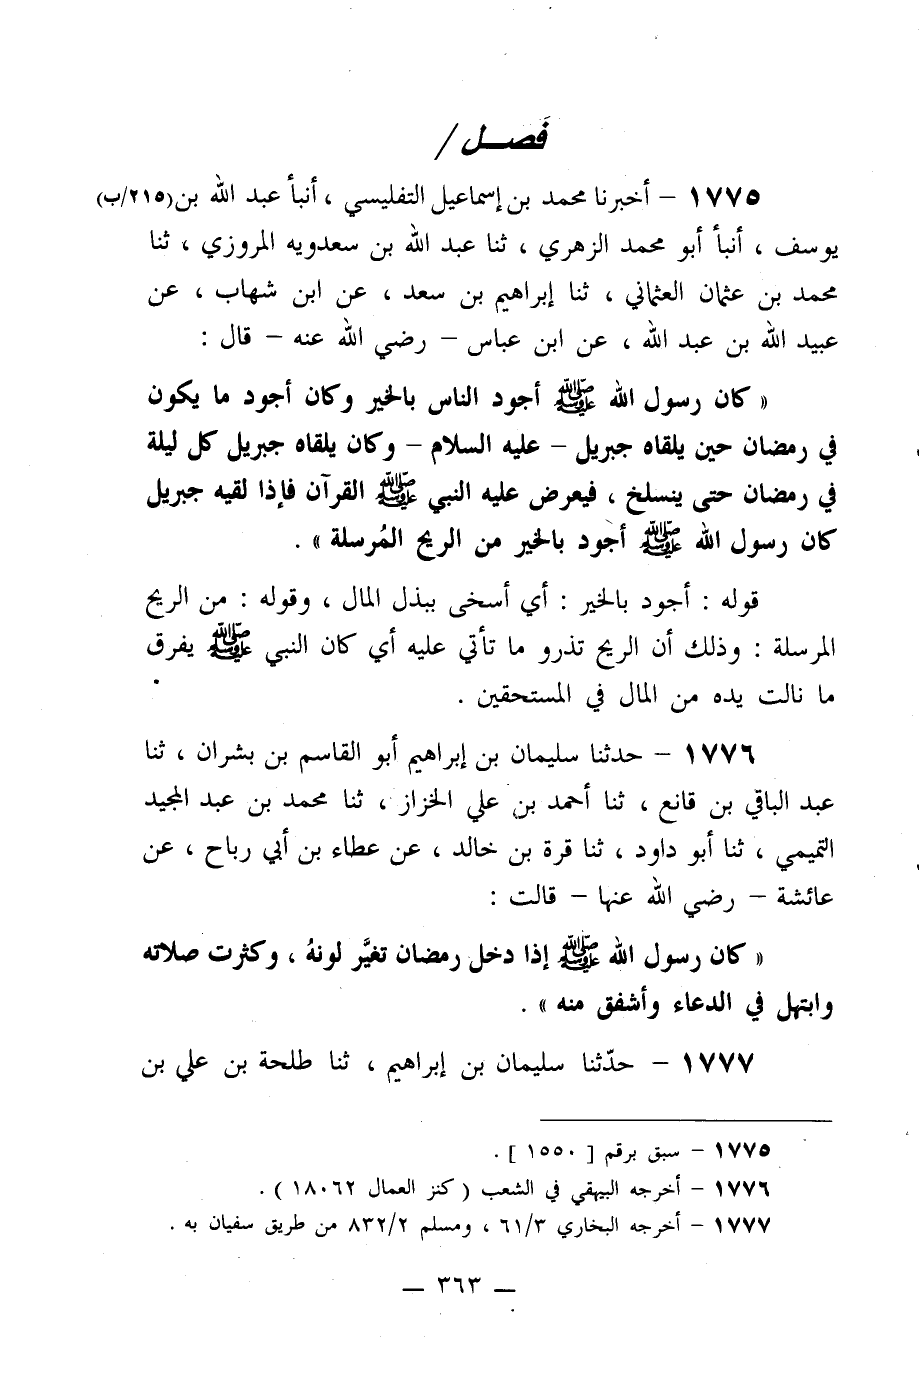 فَصـــل /
١٧٧٥ – أخبرنا محمد بن إسماعيل التفليسي ، أنبأ عبد الله بن (٢١٥/ب)
يوسف ، أنبأ أبو محمد الزهري ، ثنا عبد الله بن سعدويه المروزي ، ثنا
محمد بن عثمان العثماني ، ثنا إبراهيم بن سعد ، عن ابن شهاب ، عن
عبيد الله بن عبد الله ، عن ابن عباس – رضي الله عنه – قال :
« كان رسول الله ﷺ أجود الناس بالخير وكان أجود ما يكون
في رمضان حين يلقاه جبريل – عليه السلام – وكان يلقاه جبريل كل ليلة
في رمضان حتى ينسلخ ، فيعرض عليه النبي ﷺ القرآن فإذا لقيه جبريل
كان رسول الله ﷺ أجود بالخير من الريح المُرسلة » .
قوله : أجود بالخير : أي أسخى ببذل المال ، وقوله : من الريح
المرسلة : وذلك أن الريح تذرو ما تأتي عليه أي كان النبي ﷺ يفرق
ما نالت يده من المال في المستحقين .
١٧٧٦ – حدثنا سليمان بن إبراهيم أبو القاسم بن بشران ، ثنا
عبد الباقي بن قانع ، ثنا أحمد بن علي الخزاز ، ثنا محمد بن عبد المجيد
التميمي ، ثنا أبو داود ، ثنا قرة بن خالد ، عن عطاء بن أبي رباح ، عن
عائشة – رضي الله عنها – قالت :
« كان رسول الله ﷺ إذا دخل رمضان تغيَّر لونهُ ، وكثرت صلاته
وابتهل في الدعاء وأشفق منه » .
١٧٧٧ – حدّثنا سليمان بن إبراهيم ، ثنا طلحة بن علي بن
١٧٧٥ – سبق برقم [ ١٥٥٠ ] .
١٧٧٦ – أخرجه البيهقي في الشعب ( كنز العمال ١٨٠٦٢ ) .
١٧٧٧ – أخرجه البخاري ٦١/٣ ، ومسلم ٨٣٢/٢ من طريق سفيان به .
– ٣٦٣ –